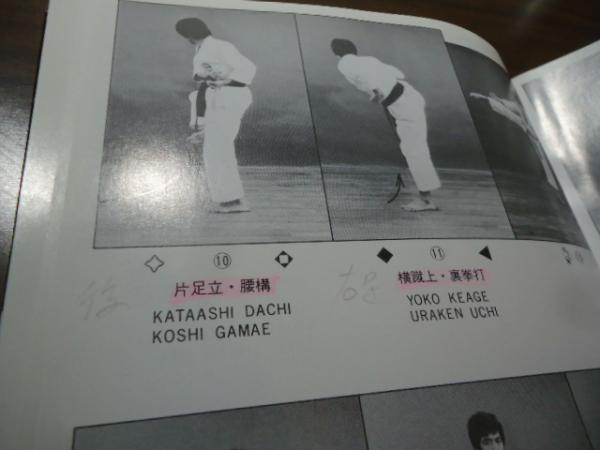 ⑩
片足立・腰構
KATAASHI DACHI
KOSHI GAMAE
⑪
横蹴上・裏拳打
YOKO KEAGE
URAKEN UCHI